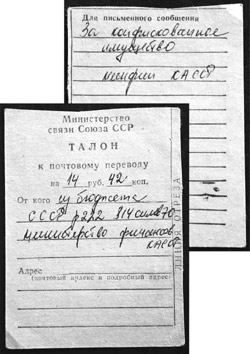 Для письменного сообщения
За конфискованное
имущество
минфин КАССР
Министерство
связи Союза ССР
ТАЛОН
к почтовому переводу
на 14 руб. 42 коп.
От кого из бюджета
СССР
министерство финансов
КАССР
Адрес
(почтовый индекс и подробный адрес)
ЛИНИЯ ОТРЕЗА